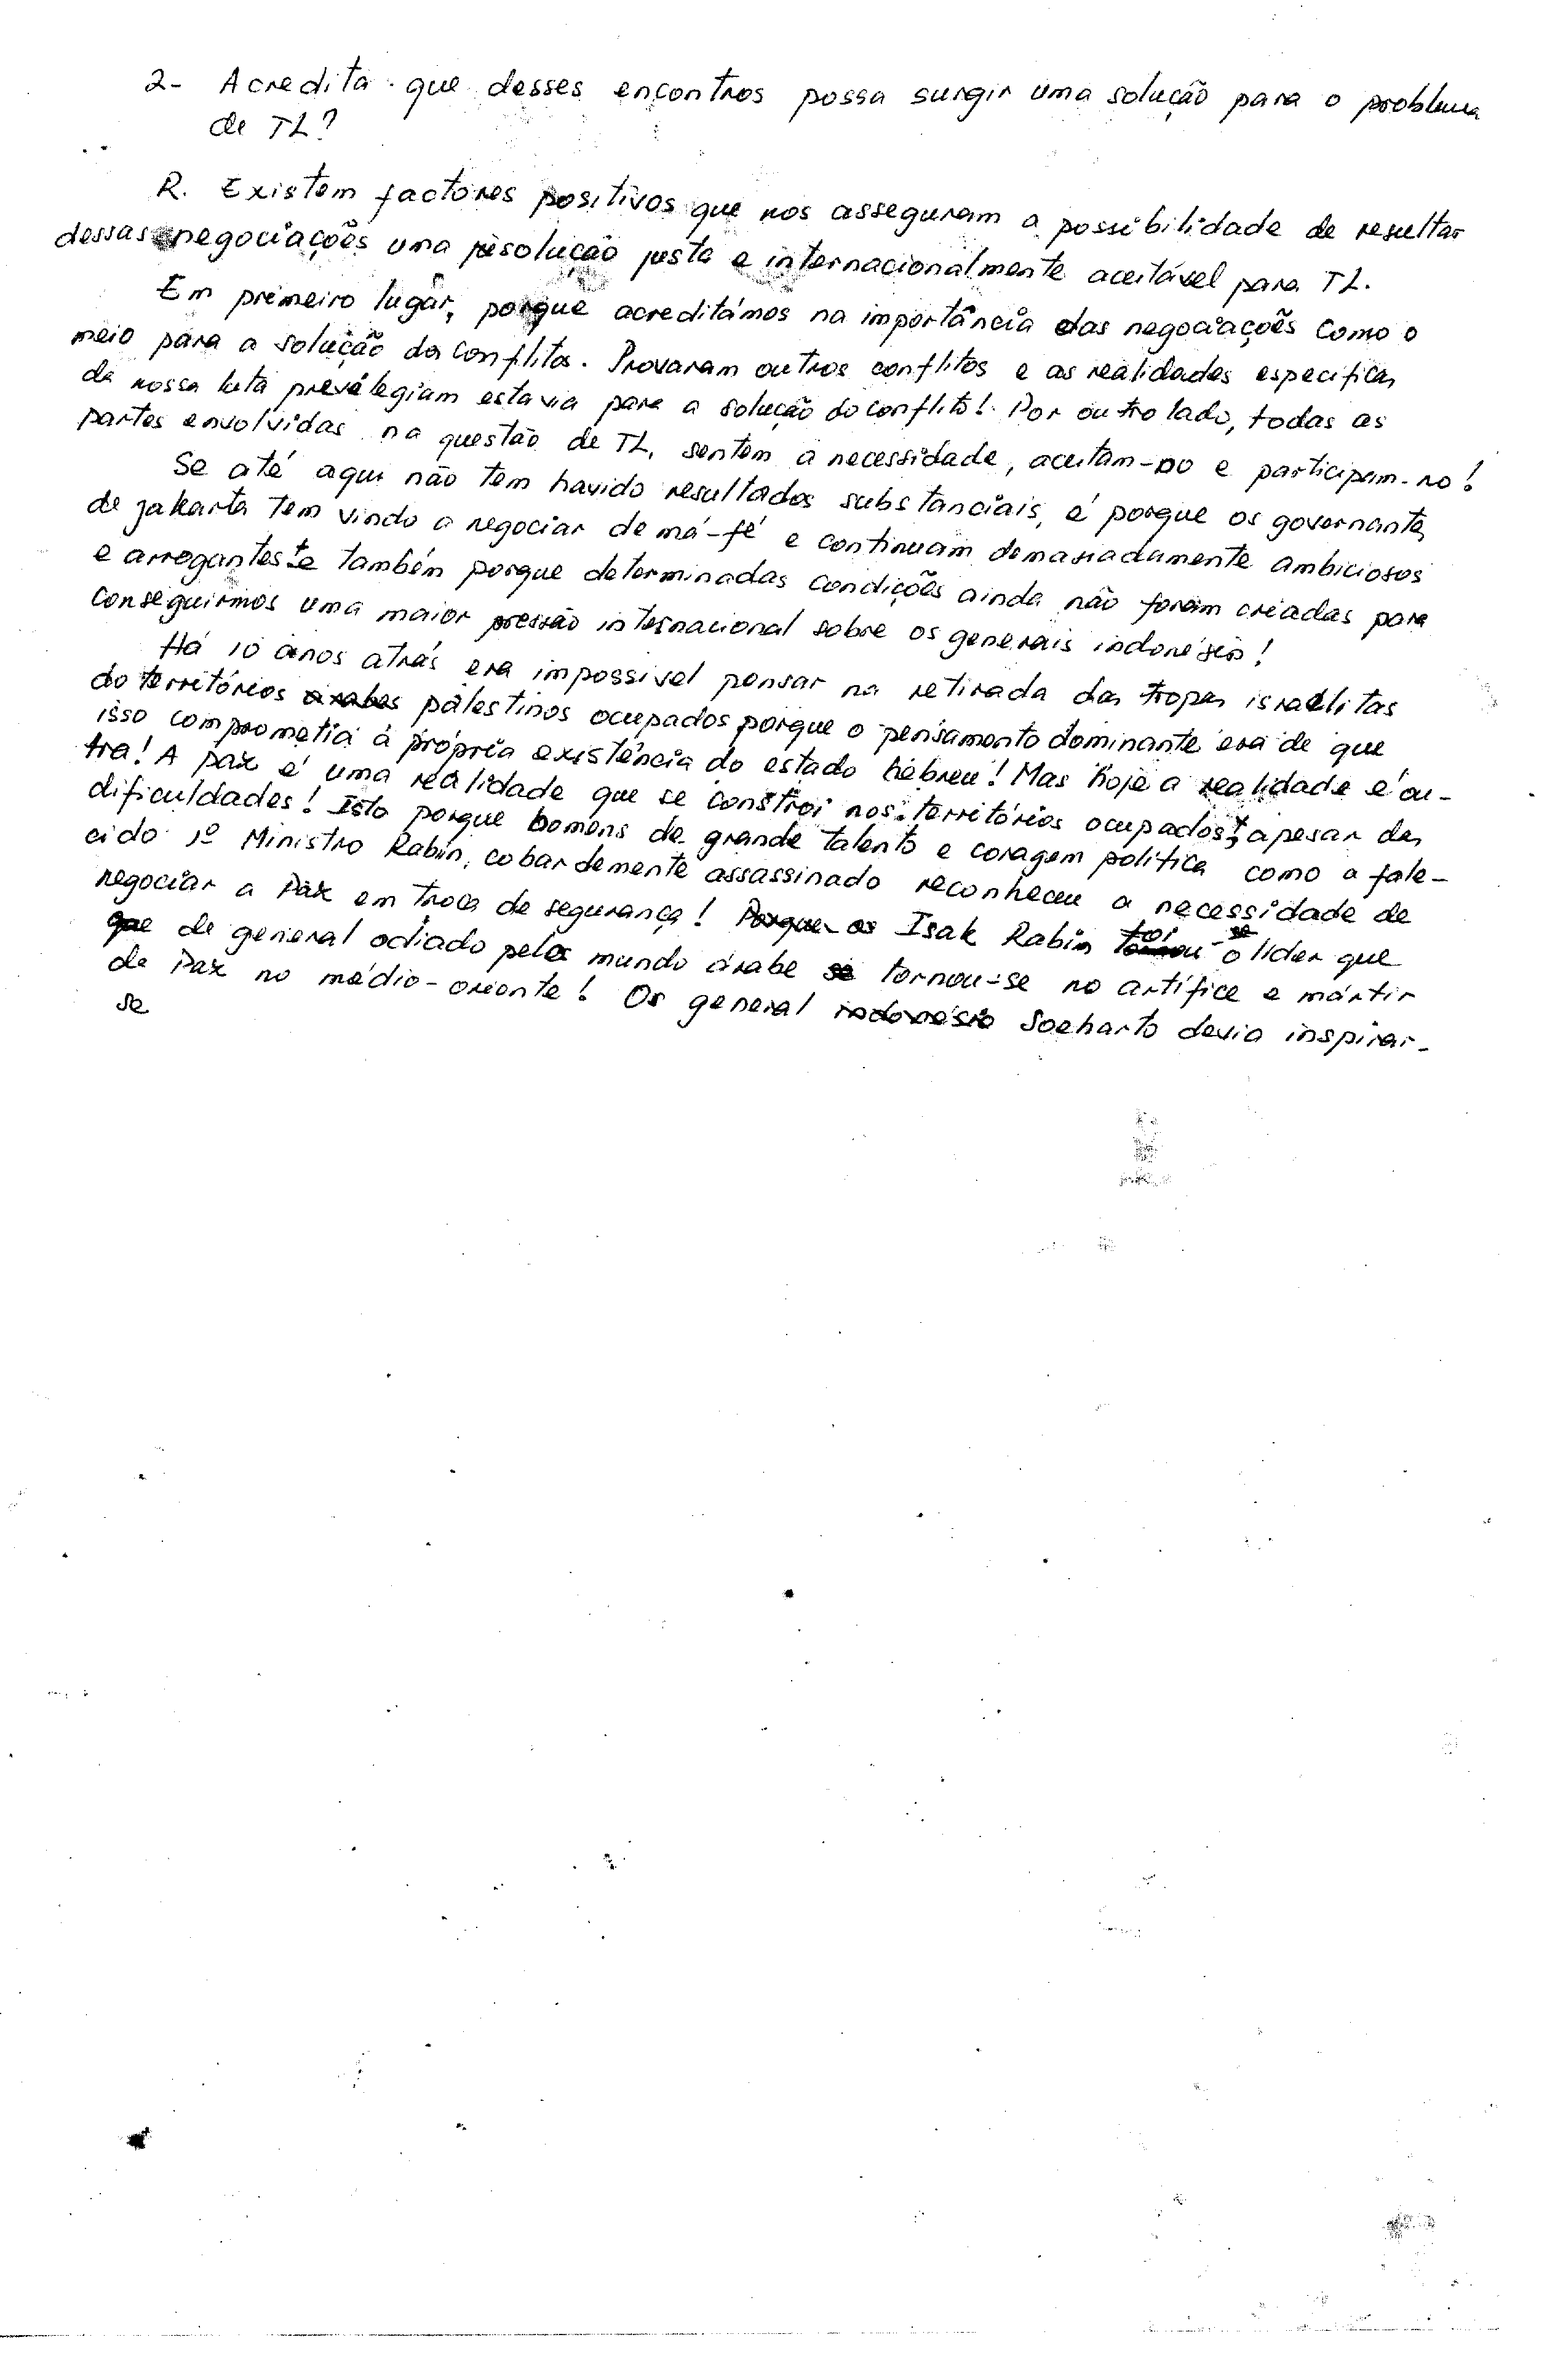 2- Acredita que desses encontros possa surgir uma solução para o problema
de TL?
R. Existem factores positivos que nos asseguram a possibilidade de resultar
dessas negociações uma resolução justa e internacionalmente aceitável para TL.
Em primeiro lugar, porque acreditámos na importância das negociações como o
meio para a solução dos conflitos. Provaram outros conflitos e as realidades especificas
da nossa luta prevélegiam esta via para a solução do conflito! Por outro lado, todas as
partes envolvidas na questão de TL, sentem a necessidade, aceitam-no e participam-no!
Se até aqui não tem havido resultados substanciais, é porque os governantes
de jakarta tem vindo a negociar de má-fé e continuam demasiadamente ambiciosos
e arrogantes e também porque determinadas condições ainda não foram criadas para
conseguirmos uma maior pressão internacional sobre os generais indonésios!
Há 10 anos atrás era impossivel pensar na retirada das tropas israelitas
do territórios arabes palestinos ocupados porque o pensamento dominante era de que
isso comprometia à própria existência do estado hebreu! Mas hoje a realidade é ou-
tra! A paz é uma realidade que se constroi nos territórios ocupados, apesar das
dificuldades! Isto porque homens de grande talento e coragem politica como o fale-
cido 1º Ministro Rabin, cobardemente assassinado reconheceu a necessidade de
negociar a Paz em troca de segurança! Porque os Isak Rabin foi o lider que
que de general odiado pelo mundo árabe se tornou-se no artífice e mártir
da Paz no médio-oriente! Os general indonésio Soeharto devia inspirar-
se